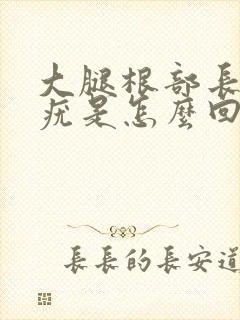 大腿根部長
疣是怎麼回
長長的長安道